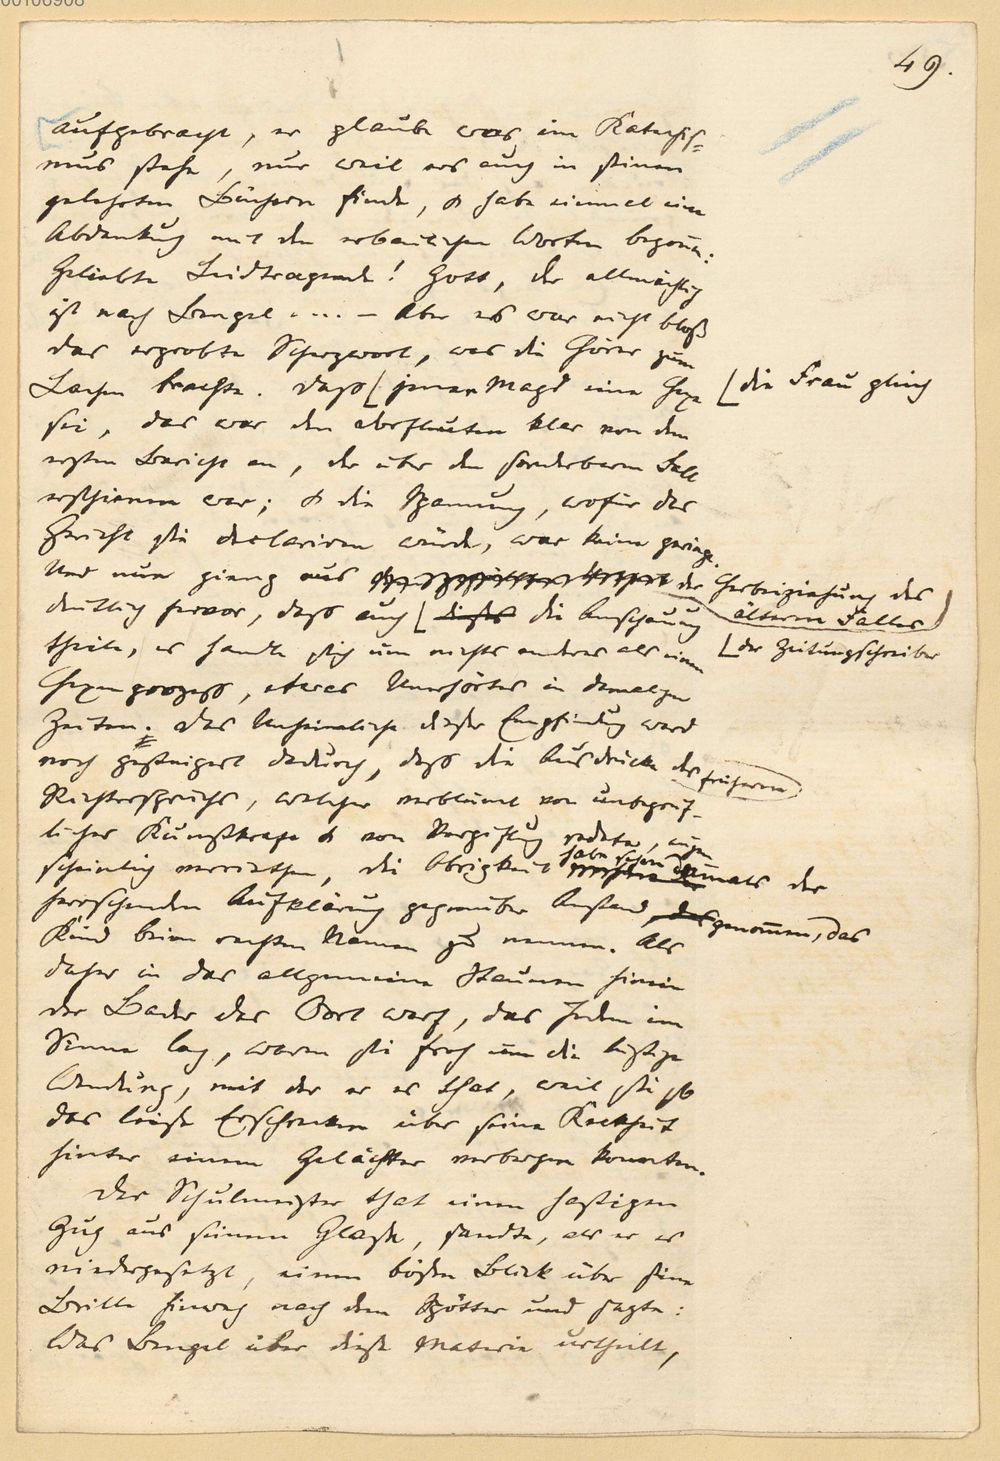 00106908
49.
aufgebracht, er glaube was im Katechis-
mus stehe, nur weil ers auch in seinen
gelehrten Büchern finde, & habe einmal eine
Abdankung mit den erbaulichen Worten begonnen:
Geliebte Leidtragende! Gott, der allmächtig
ist nach Bengel .... – Aber es war nicht bloß
das erprobte Scherzwort, was die Hörer zum
Lachen brachte. Daß [ jene Magd eine Hexe
[ die Frau gleich
sei, das war den Leuten klar von dem
ersten Bericht an, der über den sonderbaren Fall
erschienen war; & die Spannung, wofür das
Gericht sie declariren würde, war keine geringe.
Und nun gieng aus der Herbeiziehung des
älteren Falles
deutlich hervor, daß auch [ die Anschauung
[ der Zeitungschreiber
theile, es handle sich um nichts anderes als einen
Hexenprozess, etwas Unerhörtes in damaligen
Zeiten. Das Unheimliche dieser Empfindung ward
noch gesteigert dadurch, daß die Ausdrücke des früheren
Richterspruchs, welcher verblümt von unbegreif-
licher Kunstkraft & von Vergiftung redete, augen
scheinlich verriethen, die Obrigkeit habe schon damals der
herrschenden Aufklärung gegenüber Anstand genommen, das
Kind beim rechten Namen zu nennen. Als
daher in das allgemeine Staunen hinein
der Bader das Wort warf, das Jedem im
Sinne lag, waren sie froh um die lustige
Wendung, mit der er es that, weil sie so
das leise Erschrecken über seine Keckheit
hinter einem Gelächter verbergen konnten.
Der Schulmeister that einen hastigen
Zug aus seinem Glase, sandte, als er es
niedergesetzt, einen bösen Blick über seine
Brille hinweg nach dem Spötter und sagte:
Was Bengel über diese Materie urtheilt,